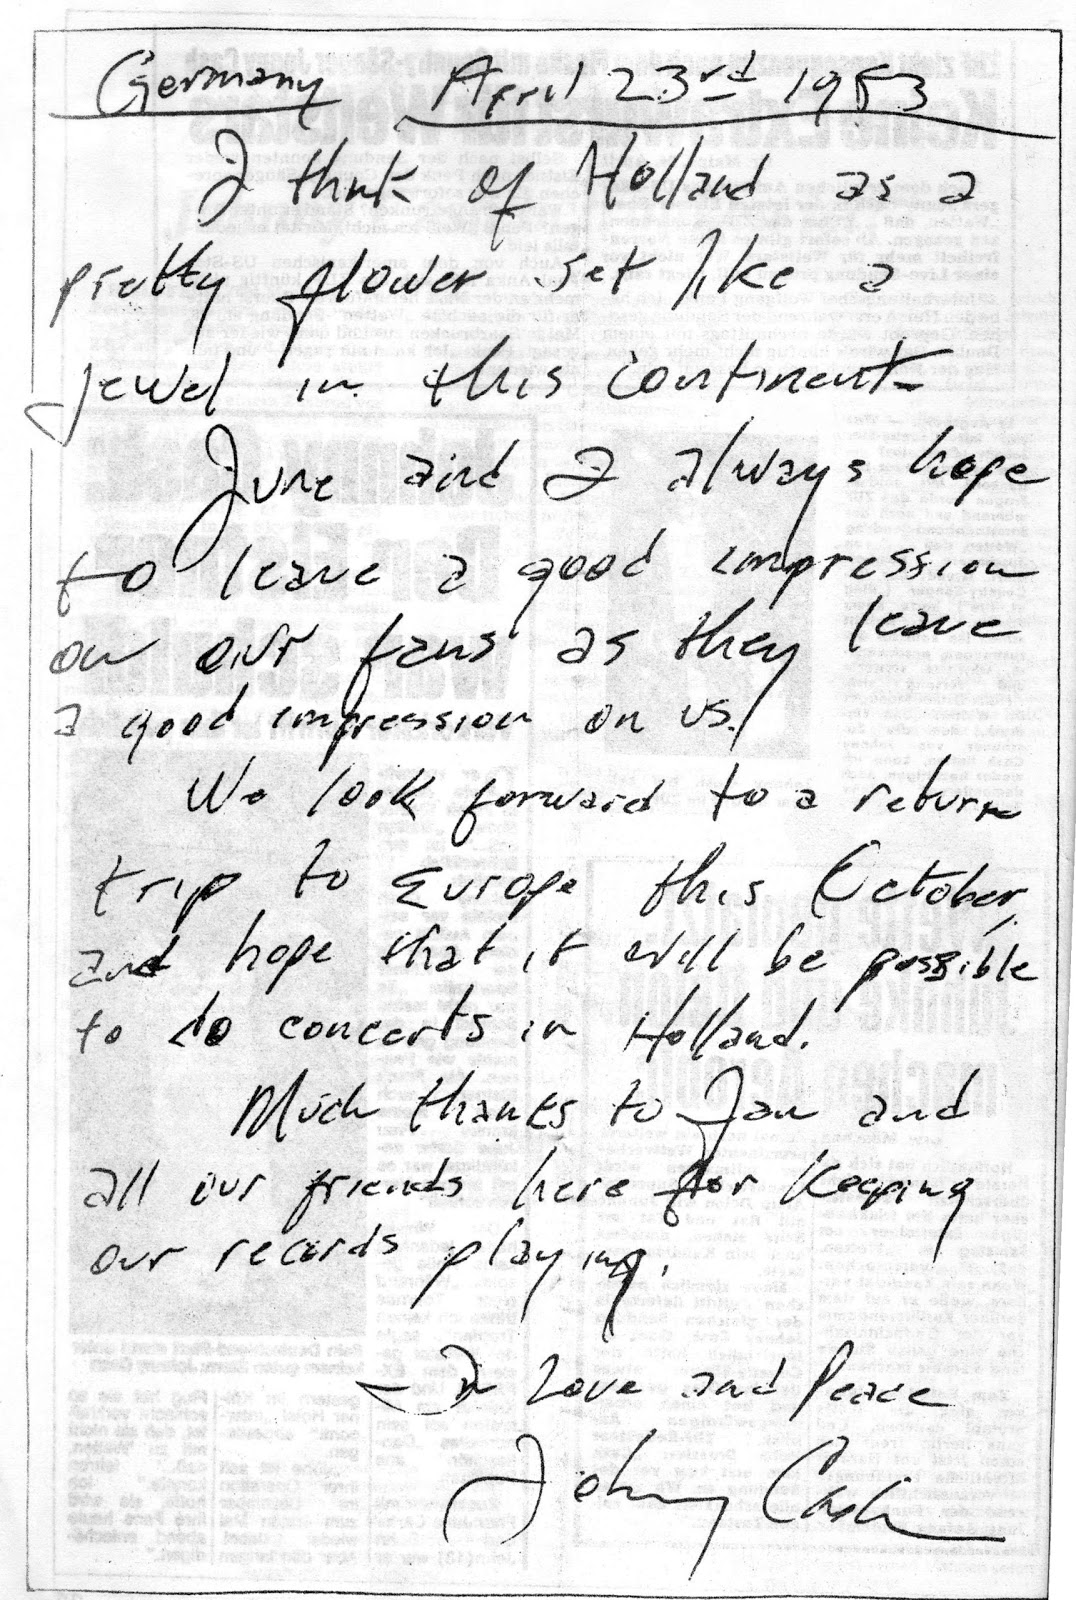 Germany April 23rd 1983
I think of Holland as a
pretty flower set like a
jewel in this continent
June and I always hope
to leave a good impression
on our fans as they leave
a good impression on us.
We look forward to a return
trip to Europe this October,
and hope that it will be possible
to do concerts in Holland.
Much thanks to Jan and
all our friends here for keeping
our records playing.
In Love and Peace
Johnny Cash